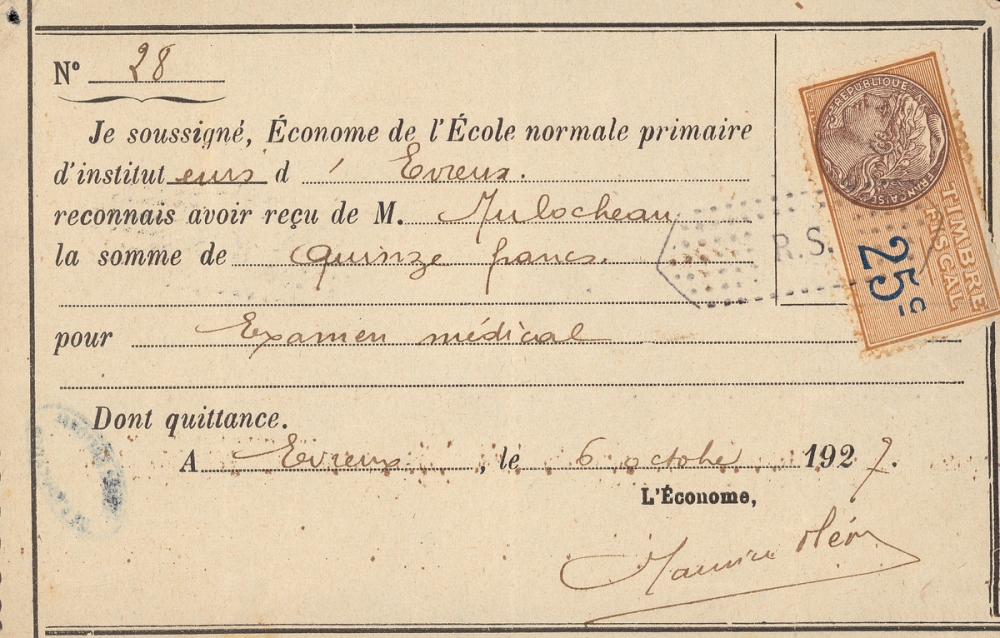 N° 28
Je soussigné, Économe de l'École normale primaire
d'instituteurs d'Evreux.
reconnais avoir reçu de M. Mulocheau
la somme de quinze francs.
pour Examen médical
Dont quittance.
A Evreux, le 6 octobre 1927.
L'Économe,
Maurice
RÉPUBLIQUE FRANÇAISE
TIMBRE
FISCAL
25c
R.S.